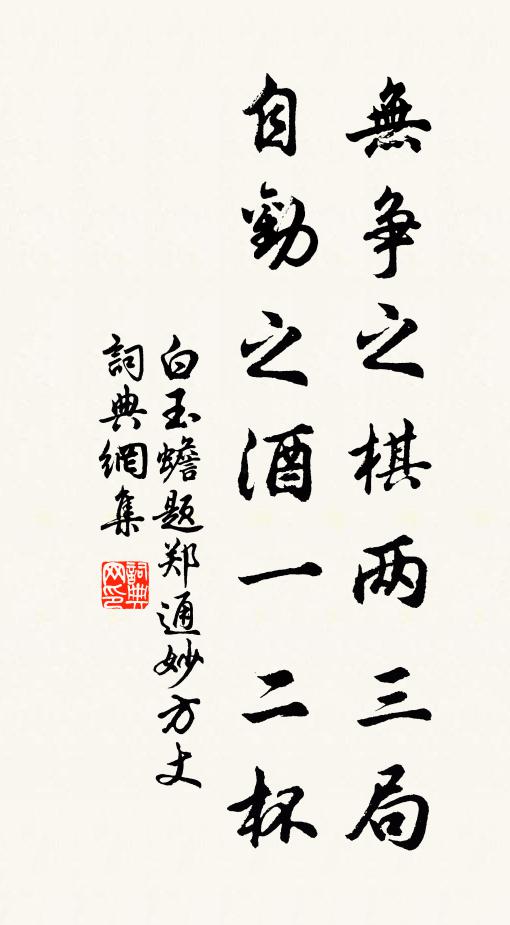 無争之棋两三局
自勸之酒一二杯
白玉蟾题郑通妙方丈
詞典網集
詞典网印